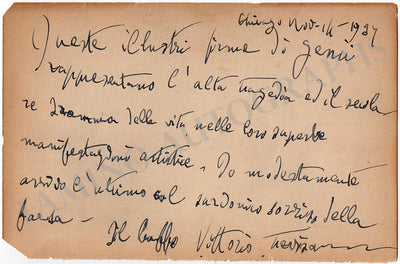 Chicago Nov-14-1927
Queste illustri firme di genii
rappresentano l'alta tragedia ed il secola
re dramma della vita nelle loro superbe
manifestazioni artistiche - Io modestamente
arrivo l'ultimo col sardonico sorriso della
farsa -
Il buffo Vittorio Trevisan
TAMINO AUTOGRAPHS